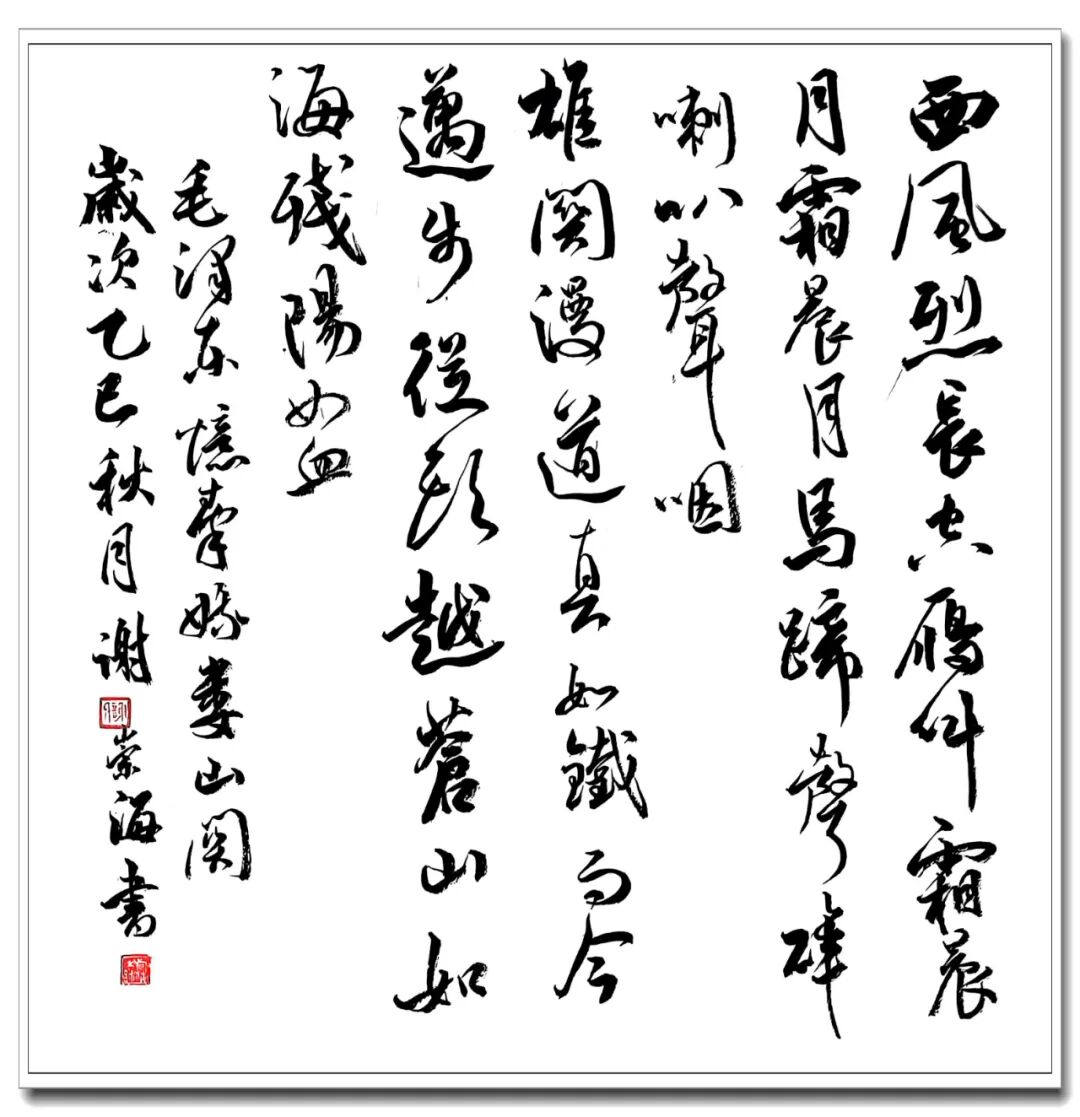 西風烈長空鴈叫霜晨
月霜晨月馬蹄聲碎
喇叭聲咽
雄關漫道真如鐵而今
邁步從頭越蒼山如
海殘陽如血
毛澤東憶秦娥婁山關
歲次乙巳秋月謝崇海書